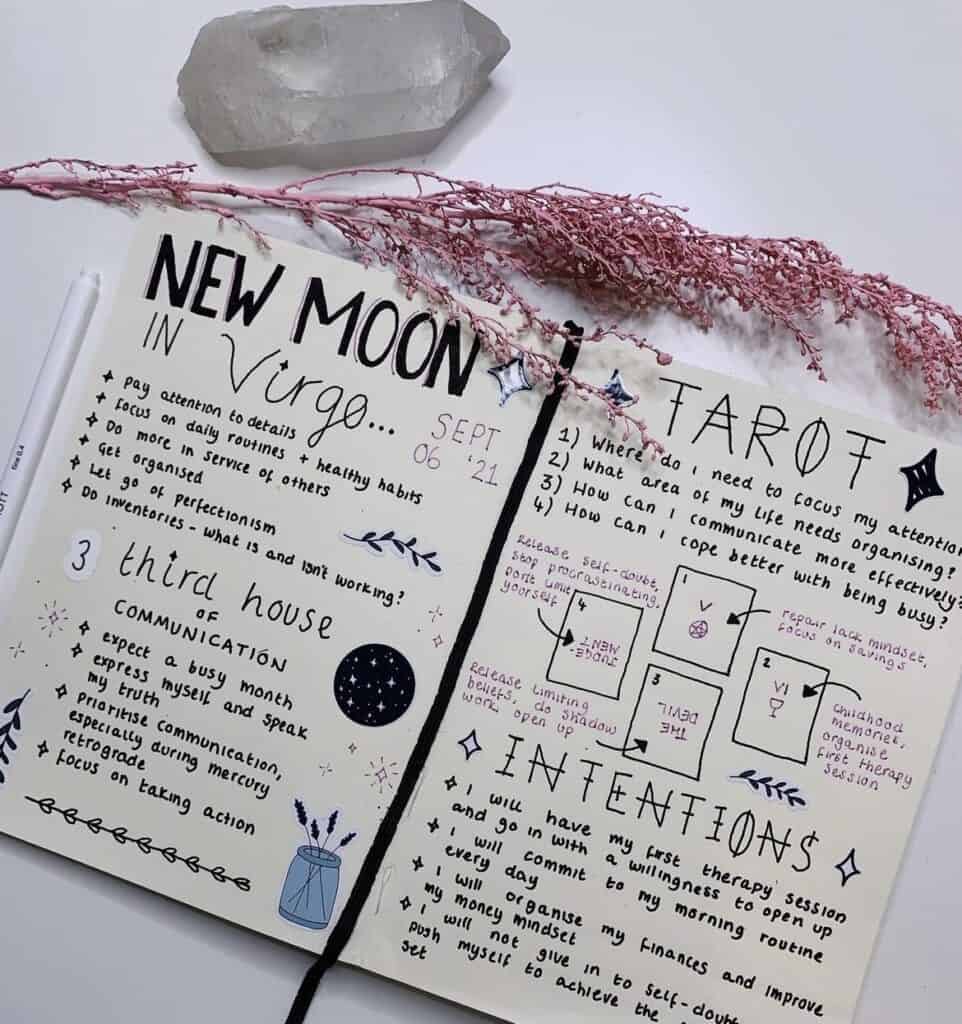 NEW MOON
IN Virgo...
SEPT
06 '21
Pay attention to details
Focus on daily routines + healthy habits
Do more in service of others
Get organised
Let go of perfectionism
Do inventories - what is and isn't working?
3
third house
OF
COMMUNICATION
expect a busy month
express myself and speak
my truth
Prioritise communication,
especially during mercury
retrograde
Focus on taking action
fine 0.4
TAROT
1) Where do I need to focus my attention
2) What area of my life needs organising?
3) How can I communicate more effectively?
4) How can I cope better with being busy?
Release self-doubt,
stop procrastinating,
don't limit
yourself
4
JUDGE-
MENT
1
V
repair lack mindset,
focus on savings
Release limiting
beliefs, do shadow
work, open up
3
THE
DEVIL
2
VI
Childhood
memories,
organise
first therapy
session
INTENTIONS
I will have my first therapy session
and go in with a willingness to open up
I will commit to my morning routine
every day
I will organise my finances and improve
my money mindset
I will not give in to self-doubt
push myself to achieve the
set